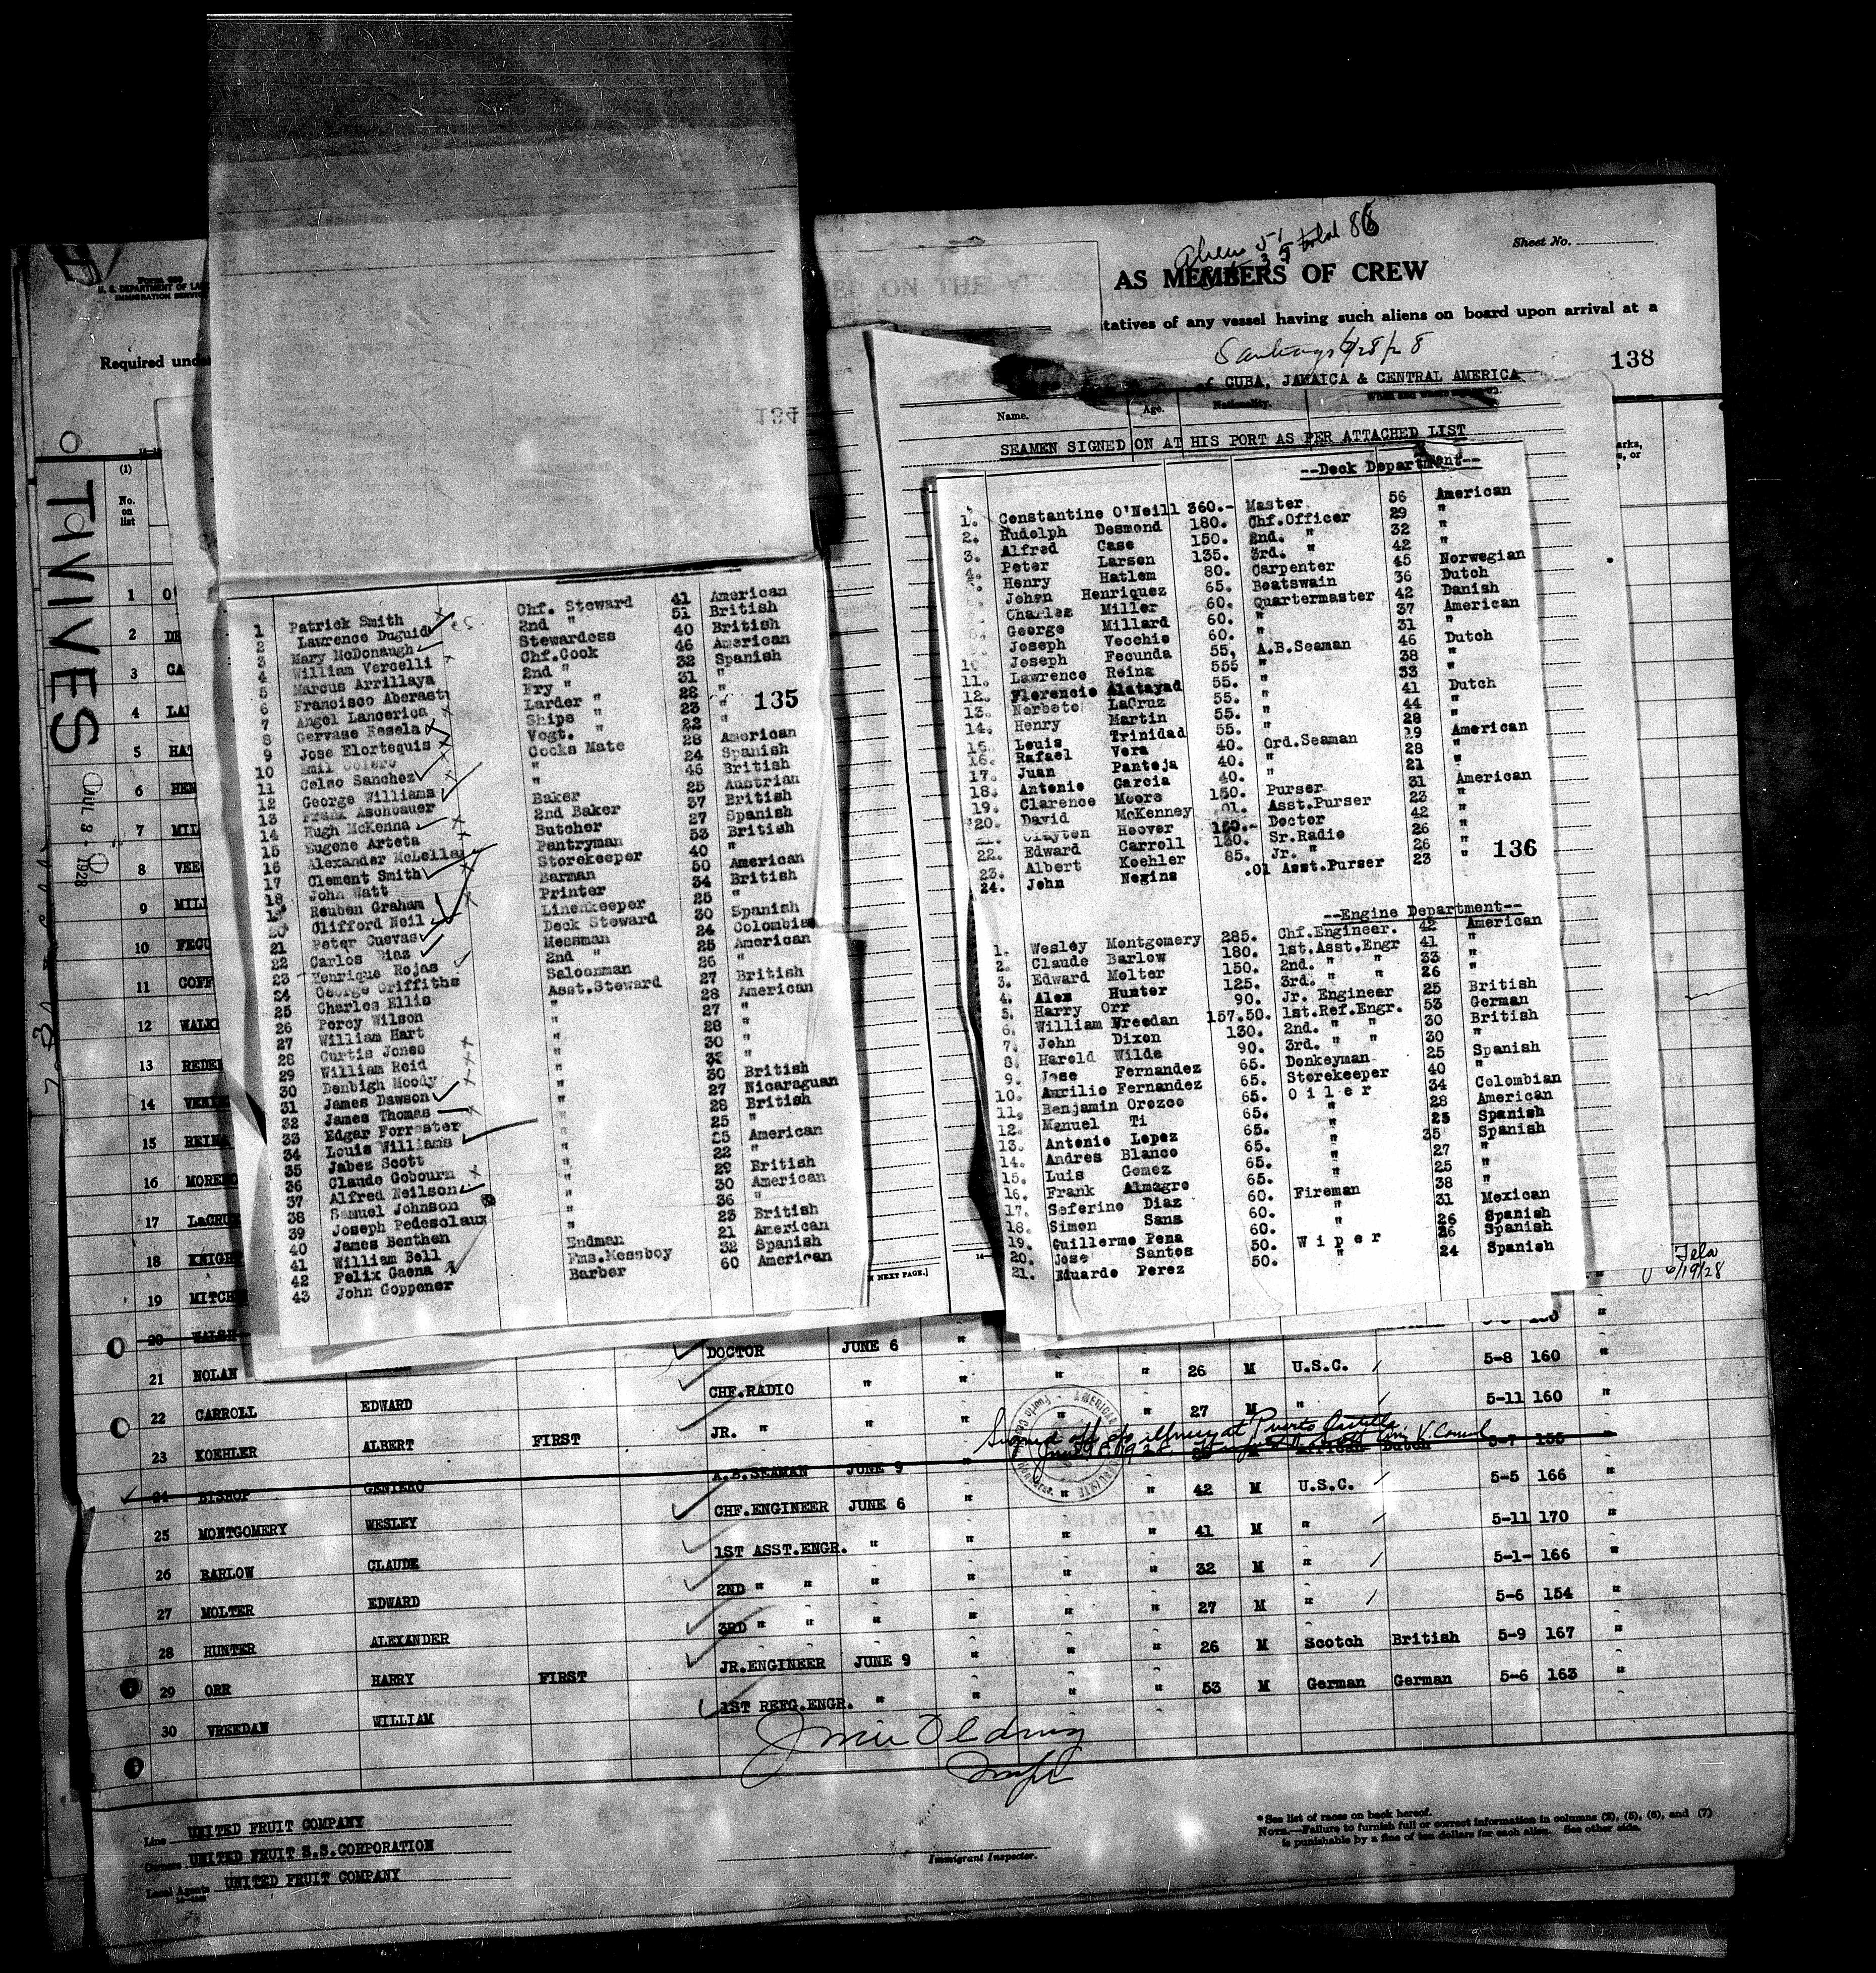 Aliens 51 total 86
35
Sheet No.
AS MEMBERS OF CREW
tatives of any vessel having such aliens on board upon arrival at a
Santiago 6/28/28
of CUBA, JAMAICA & CENTRAL AMERICA
138
Form 689
U. S. DEPARTMENT OF LAB
IMMIGRATION SERVICE
Required unde
TIVIVES
JUL 3 - 1928
(1)
No. on list
134
Name. Age. Nationality.
SEAMEN SIGNED ON AT HIS PORT AS PER ATTACHED LIST
1 Patrick Smith Chf. Steward 41 American
2 Lawrence Duguid 2nd " 51 British
3 Mary McDonaugh Stewardess 40 British
4 William Vercelli Chf.Cook 46 American
5 Marcus Arrillaya 2nd " 32 Spanish
6 Francisco Aberasti Fry " 31 "
7 Angel Lancerica Larder " 28 "
8 Gervase Resela Ships " 23 "
9 Jose Elortequis Vegt. " 22 "
10 Emil Cocks Mate 28 American
11 Celso Sanchez " 24 Spanish
12 George Williams " 46 British
13 Frank Aschbauer Baker 25 Austrian
14 Hugh McKenna 2nd Baker 37 British
15 Eugene Arteta Butcher 27 Spanish
16 Alexander McLellan Pantryman 53 British
17 Clement Smith Storekeeper 40 "
18 John Watt Barman 50 American
19 Reuben Graham Printer 34 British
20 Clifford Neil Linenkeeper 25 "
21 Peter Cuevas Deck Steward 30 Spanish
22 Carlos Diaz Messman 24 Colombian
23 Henrique Rojas 2nd " 25 American
24 George Griffiths Saloonman 26 "
25 Charles Ellis Asst.Steward 27 British
26 Percy Wilson " 28 American
27 William Hart " 27 "
28 Curtis Jones " 28 "
29 William Reid " 30 "
30 Denbigh Moody " 32 "
31 James Dawson " 30 British
32 James Thomas " 27 Nicaraguan
33 Edgar Forrester " 28 British
34 Louis Williams " 25 "
35 Jabez Scott " 25 American
36 Claude Gobourn " 22 "
37 Alfred Neilson " 29 British
38 Samuel Johnson " 30 American
39 Joseph Pedesclaux " 36 "
40 James Benthen " 23 British
41 William Bell Endman 21 American
42 Felix Gaena Fms.Messboy 32 Spanish
43 John Goppener Barber 60 American
135
--Deck Department--
1. Constantine O'Neill 360.- Master 56 American
2. Rudolph Desmond 180. Chf.Officer 29 "
3. Alfred Case 150. 2nd. " 32 "
4. Peter Larsen 135. 3rd. " 42 "
Henry Hatlem 80. Carpenter 45 Norwegian
Johan Henriquez 65. Boatswain 36 Dutch
Charles Miller 60. Quartermaster 42 Danish
George Millard 60. " 37 American
Joseph Vecchio 60. " 31 "
10 Joseph Fecunda 55. A.B.Seaman 46 Dutch
11. Lawrence Reina 555 " 38 "
12. Florencio Alatayad 55. " 33 "
13. Norbeto LaCruz 55. " 41 Dutch
14. Henry Martin 55. " 44 "
15. Louis Trinidad 55. " 28 "
16. Rafael Vera 40. Ord.Seaman 19 American
17. Juan Pantoja 40. " 28 "
18. Antonio Garcia 40. " 21 "
19. Clarence Moore 150. Purser 31 American
20. David McKenney .01. Asst.Purser 23 "
21. Clayton Hoover 150.- Doctor 42 "
22. Edward Carroll 120. Sr.Radio 26 "
23. Albert Koehler 85. Jr. " 26 "
24. John Negins .01 Asst.Purser 23 "
136
--Engine Department--
1. Wesley Montgomery 285. Chf.Engineer. 42 American
2. Claude Barlow 180. 1st.Asst.Engr 41 "
3. Edward Molter 150. 2nd. " " 33 "
4. Alex Hunter 125. 3rd. " " 26 "
5. Harry Orr 90. Jr. Engineer 25 British
6. William Vreedan 157.50. 1st.Ref.Engr. 53 German
7. John Dixon 130. 2nd. " " 30 British
8. Harold Wilde 90. 3rd. " " 30 "
9. Jose Fernandez 65. Donkeyman 25 Spanish
10. Aurilio Fernandez 65. Storekeeper 40 "
11. Benjamin Orozco 65. Oiler 34 Colombian
12. Manuel Ti 65. " 28 American
13. Antonio Lopez 65. " 25 Spanish
14. Andres Blanco 65. " 35 Spanish
15. Luis Gomez 65. " 27 "
16. Frank Almagro 65. " 25 "
17. Seferino Diaz 60. Fireman 38 "
18. Simon Sans 60. " 31 Mexican
19. Guillermo Pena 60. " 26 Spanish
20. Jose Santos 50. Wiper 26 Spanish
21. Eduardo Perez 50. " 24 Spanish
NEXT PAGE.]
Tela
6/19/28
1 O'
2 DE
3 CA
4 LA
5 HA
6 HEN
7 MIL
8 VEC
9 MILL
10 FECU
11 COFF
12 WALK
13 REDE
14
15 REIN
16 MORENO
17 LaCRU
18 KNIGHT
19 MITCH
20 WALSH
21 NOLAN DOCTOR JUNE 6 " " " 26 M U.S.C. 5-8 160 "
22 CARROLL EDWARD CHF.RADIO " " " " 27 M " 5-11 160 "
23 KOEHLER ALBERT FIRST JR. " " "
Signed off a/c illness at Puerto Castilla
V. Consul
24 BISHOP GENIERO A.B.SEAMAN JUNE 9 " Dutch 5-7 155 "
25 MONTGOMERY WESLEY CHF.ENGINEER JUNE 6 " " " 42 M U.S.C. 5-5 166 "
26 BARLOW CLAUDE 1ST ASST.ENGR. " " " " 41 M " 5-11 170 "
27 MOLTER EDWARD 2ND " " " " " " 32 M " 5-1- 166 "
28 HUNTER ALEXANDER 3RD " " " " " " 27 M " 5-6 154 "
29 ORR HARRY FIRST JR.ENGINEER JUNE 9 " " " 26 M Scotch British 5-9 167 "
30 VREEDAN WILLIAM 1ST REFG.ENGR. " " " " 53 M German German 5-6 163 "
Line UNITED FRUIT COMPANY
Owners UNITED FRUIT S.S.CORPORATION
Local Agents UNITED FRUIT COMPANY
Immigrant Inspector.
*See list of races on back hereof.
NOTE.—Failure to furnish full or correct information in columns (2), (5), (6), and (7)
is punishable by a fine of ten dollars for each alien. See other side.